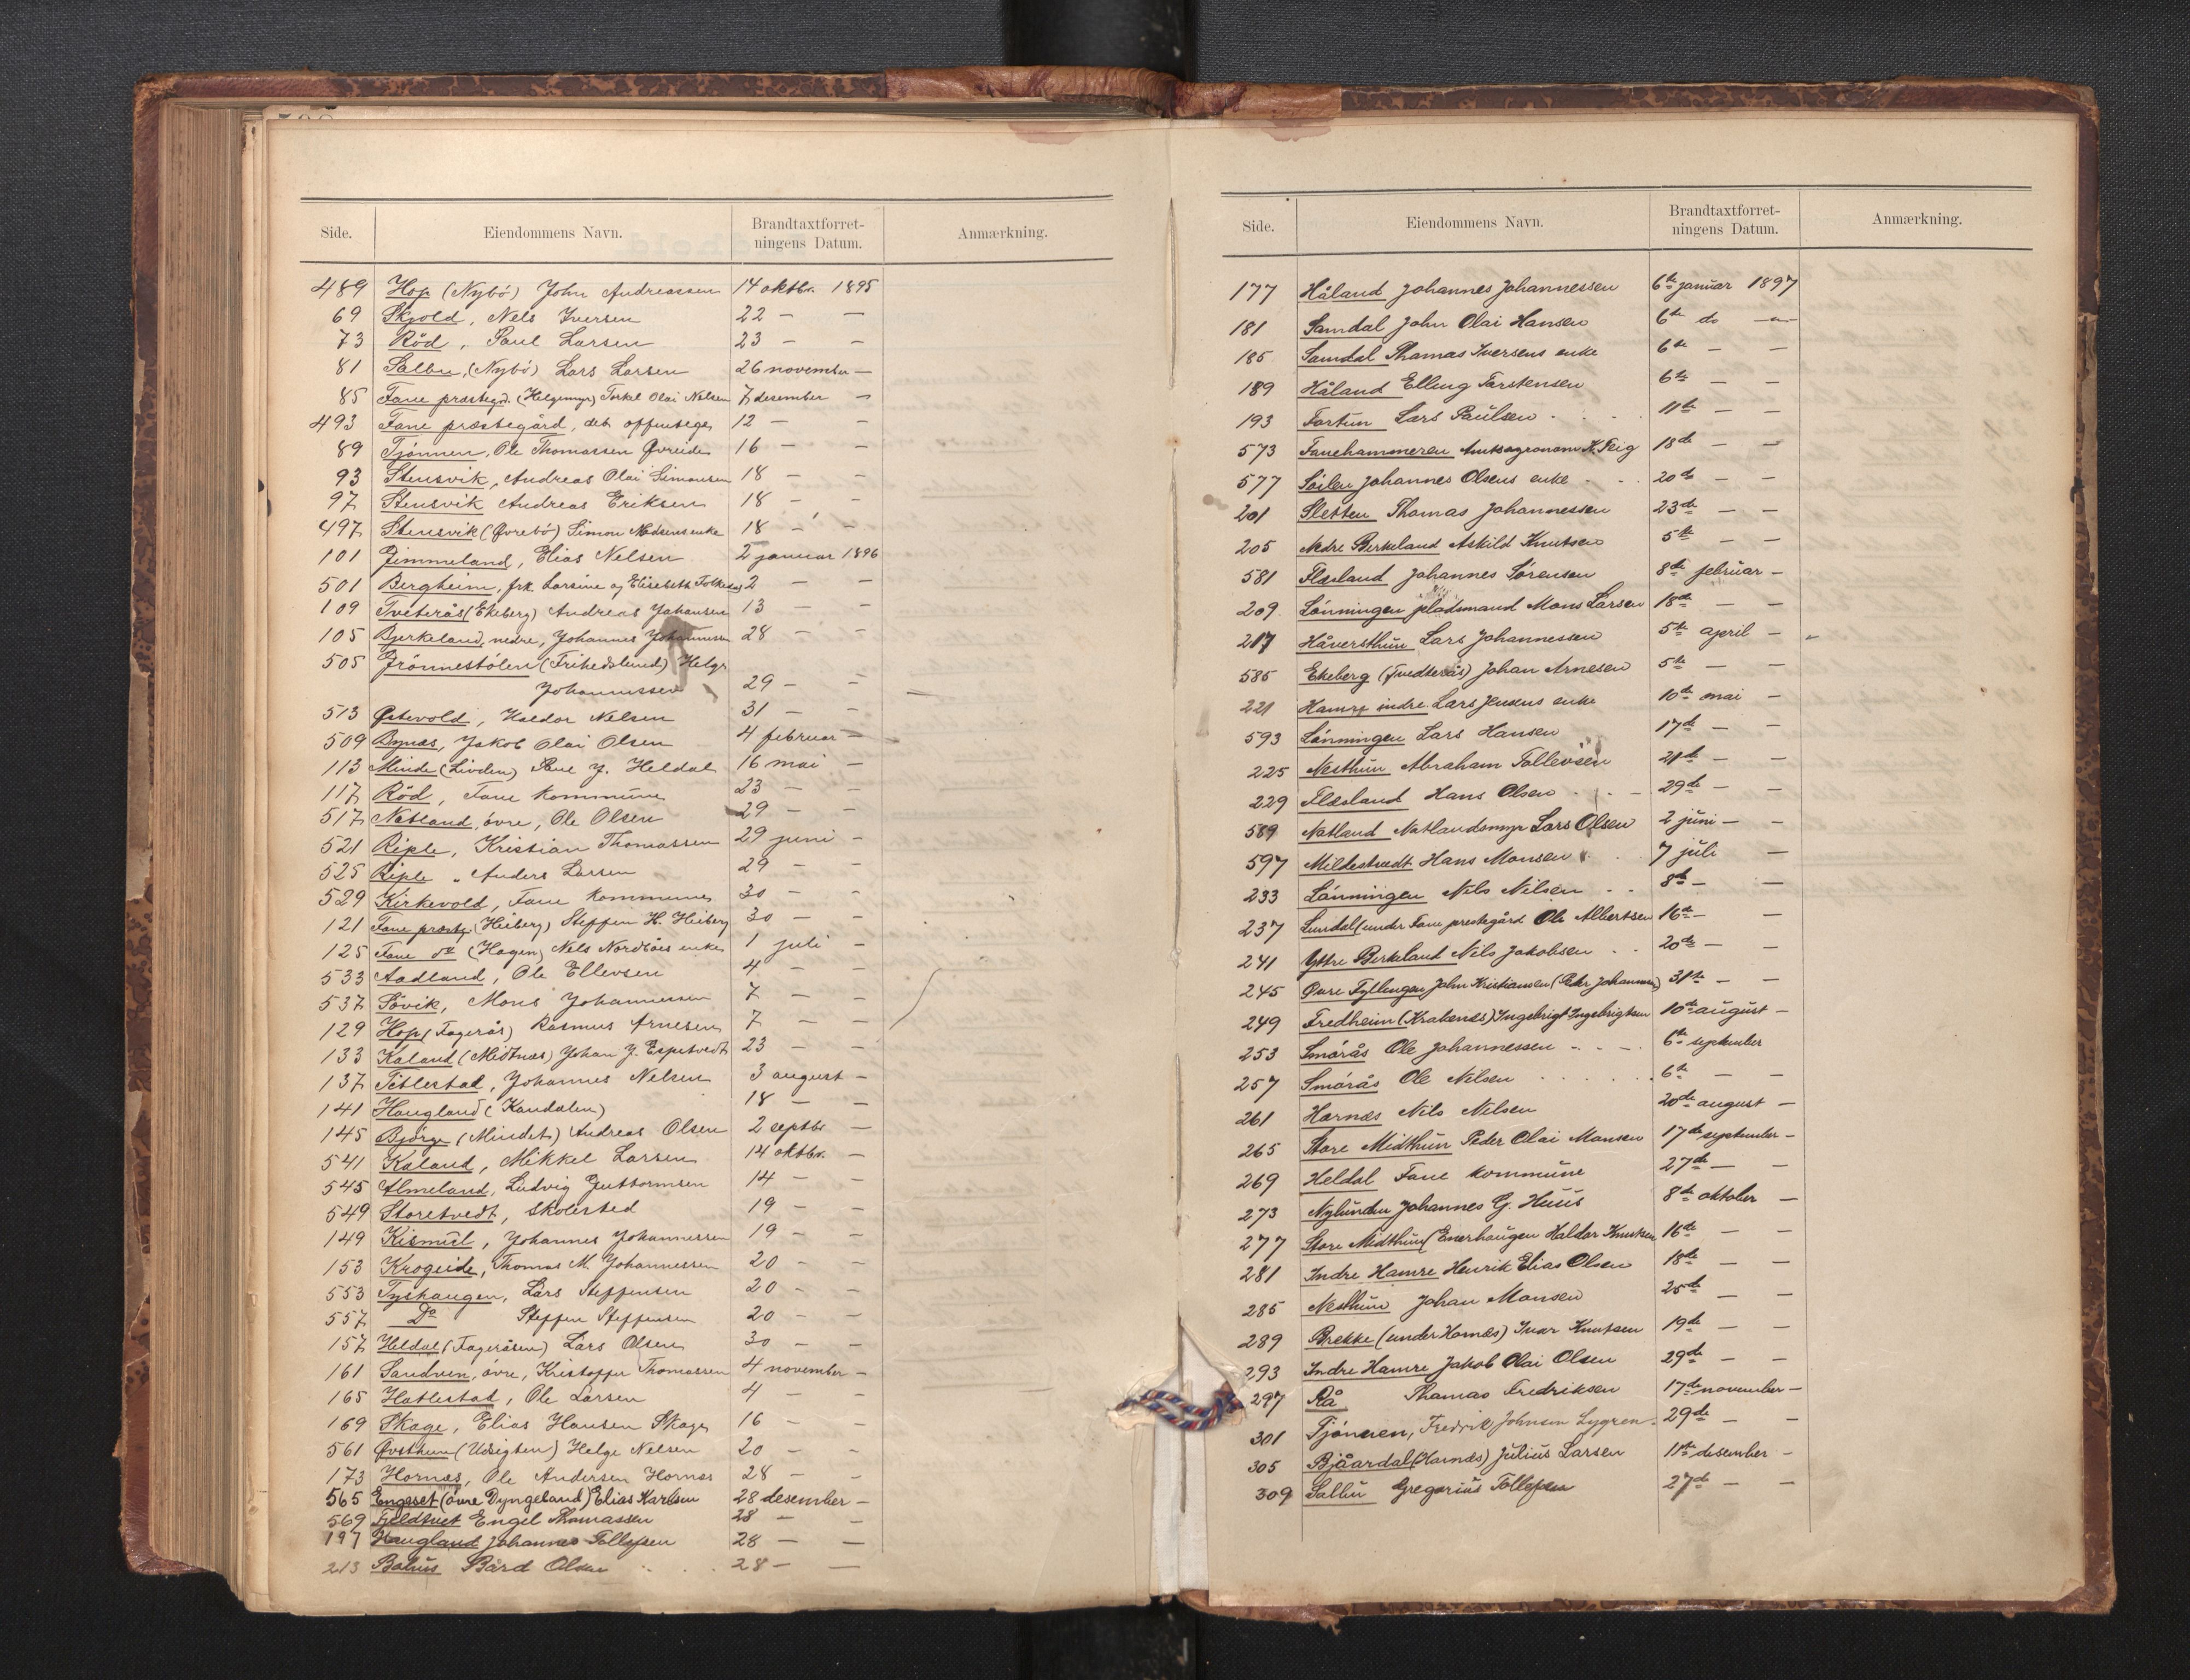 Side. Eiendommens Navn. Brandtaxtforret-ningens Datum. Anmærkning.
489 Hop (Nybö) John Andreassen 14 oktbr. 1895
69 Skjold, Nels Iversen 22 — —
73 Röd, Paul Larsen 23 — —
81 Sælbu, (Nybö) Lars Larsen 26 november —
85 Fane præstegd. (Helgemyr) Torkel Olai Nelsen 7 desember —
493 Fane præstegård, det offentlige 12 — —
89 Tjönnen, Ole Thomassen Øvreide 16 — —
93 Stensvik, Andreas Olai Simonsen 18 — —
97 Stensvik Andreas Eriksen 18 — —
497 Stensvik (Øvrebö) Simon Madsens enke 18 — —
101 Jimmeland, Elias Nelsen 2 januar 1896
501 Bergheim, frk. Larsine og Elisebeth 2 — —
109 Tveterås (Ekeberg) Andreas Johansen 13 — —
105 Bjerkeland, nedre, Johannes Johannessen 28 — —
505 Grönnestölen (Frihedslund) Helge
Johannessen 29 — —
513 Østevold, Haldor Nelsen 31 — —
509 Bynæs, Jakob Olai Olsen 4 februar —
113 Minde (Linden) Paul J. Heldal 16 mai —
117 Röd, Fane kommune 23 — —
517 Natland, övre, Ole Olsen 29 — —
521 Riple, Kristian Thomassen 29 juni —
525 Riple, Anders Larsen 29 — —
529 Kirkevold, Fane kommune 30 — —
121 Fane præstg. (Heiberg) Steffen H. Heiberg 30 — —
125 Fane do (Hagen) Nels Nordtåes enke 1 juli —
533 Aadland, Ole Ellevsen 4 — —
537 Sövik, Mons Johannessen 7 — —
129 Hop (Fagerås) Rasmus Arnesen 7 — —
133 Kaland (Midtnæs) Johan J. Espetvedt 23 — —
137 Titlestad, Johannes Nelsen 3 august —
141 Haugland (Kandalen) 18 — —
145 Bjørge (Mindet) Andreas Olsen 2 septbr —
541 Kaland, Mikkel Larsen 14 oktbr. —
545 Almeland, Ludvig Guttormsen 14 — —
549 Storetvedt, skolested 19 — —
149 Kismul, Johannes Johannessen 19 — —
153 Krogeide, Thomas M. Johannessen 20 — —
553 Tyshaugen, Lars Steffensen 20 — —
557 Do Steffen Steffensen 20 — —
157 Heldal (Fageråsen) Lars Olsen 30 — —
161 Sandven, övre, Kristoffer Thomassen 4 november —
165 Hatlestad, Ole Larsen 4 — —
169 Skage, Elias Hansen Skage 16 — —
561 Øvsthun (Udsigten) Helge Nelsen 20 — —
173 Hornæs, Ole Andersen Hornæs 28 — —
565 Engeset (övre Dyngeland) Elias Karlsen 28 desember —
569 Fjeldtvet Engel Thomassen 28 — —
197 Haugland Johannes Tollefsen 28 — —
213 Bahus Bård Olsen 28 — —
Side. Eiendommens Navn. Brandtaxtforret-ningens Datum. Anmærkning.
177 Håland Johannes Johannessen 6te januar 1897
181 Samdal John Olai Hansen 6te do —
185 Samdal Thomas Iversens enke 6te — —
189 Håland Elling Torstensen 6te — —
193 Fortun Lars Paulsen 11te — —
573 Fanehammeren Amtsagronom K. Feig 18de — —
577 Söilen Johannes Olsens enke 20de — —
201 Sletten Thomas Johannessen 23de — —
205 Nedre Berkeland Askild Knutsen 5te — —
581 Flæsland Johannes Sörensen 8de februar —
209 Lönningen pladsmand Mons Larsen 18de — —
217 Håversthun Lars Johannessen 5te april —
585 Ekeberg (Tvedterås) Johan Arnesen 5te — —
221 Hamre indre Lars Jensens enke 10de mai —
593 Lönningen Lars Hansen 17de — —
225 Nesthun Abraham Tollevsen 21de — —
229 Flæsland Hans Olsen 29de — —
589 Natland Natlandsmyr Lars Olsen 2 juni — —
597 Mildestvedt Hans Monsen 7 juli —
233 Lönningen Nils Nilsen 8de — —
237 Lundal (under Fane prestegård Ole Albertsen 16de — —
241 Yttre Berkeland Nils Jakobsen 20de — —
245 Övre Fyllingen John Kristiansen (Peder Johannesen) 31te — —
249 Fredheim (Krakenæs) Ingebrigt Ingebrigtsen 10de august —
253 Smörås Ole Johannessen 6te september
257 Smörås Ole Nilsen 6te — —
261 Harnæs Nils Nilsen 20de august —
265 Store Midthun Peder Olai Monsen 17de september —
269 Heldal Fane kommune 27de — —
273 Nylunden Johannes G. Huus 8de oktober —
277 Store Midthun (Enerhaugen Haldor Knutsen 16de — —
281 Indre Hamre Henrik Elias Olsen 18de — —
285 Nesthun Johan Monsen 25de — —
289 Brekke (under Hornæs) Ivar Knutsen 19de — —
293 Indre Hamre Jakob Olai Olsen 29de — —
297 Rå Thomas Fredriksen 17de november —
301 Tjönnen, Fredrik Johnsen Lygren 29de — —
305 Bjåardal (Harnæs) Julius Larsen 11te desember —
309 Salbu Gregorius Tollefsen 27de — —